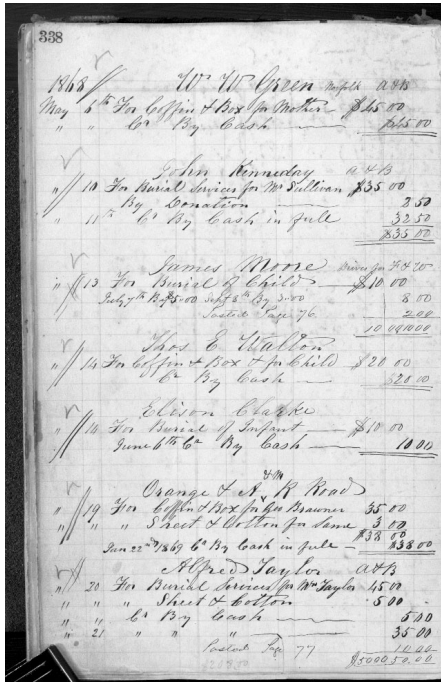 338
1868 Wm W Green Norfolk A & B
May 6th For Coffin & Box for Mother $45 00
" " Cr By Cash $45 00
John Kinneday A & B
" 10 For Burial Services for Mr Sullivan $35 00
By Donation 2 50
" 11th Cr By Cash in full 32 50
$35 00
James Moore Driver for
" 13 For Buriel of Child $10 00
July 7th By $5.00 Sept 8th By 3.00 8 00
Posted Page 76 2 00
10 00 10 00
Thos C Walton
" 14 For Coffin & Box & for Child $20 00
Cr By Cash $20 00
Elison Clarke
" 16 For Burial of Infant $10 00
June 6th Cr By Cash 10 00
Orange & A & M R Road
" 19 For Coffin & Box for Geo Brauner 35 00
" " " Sheet & Cotton for same 3 00
$38 00
Jan 22nd 1869 Cr By Cash in full $38 00
Alfred Taylor A & B
" 20 For Burial Services for Wm Taylor 45 00
" " " Sheet & Cotton 5 00
" " Cr By Cash 5 00
" 21 " " " 35 00
Posted Page 77 10 00
$50 00 50.00